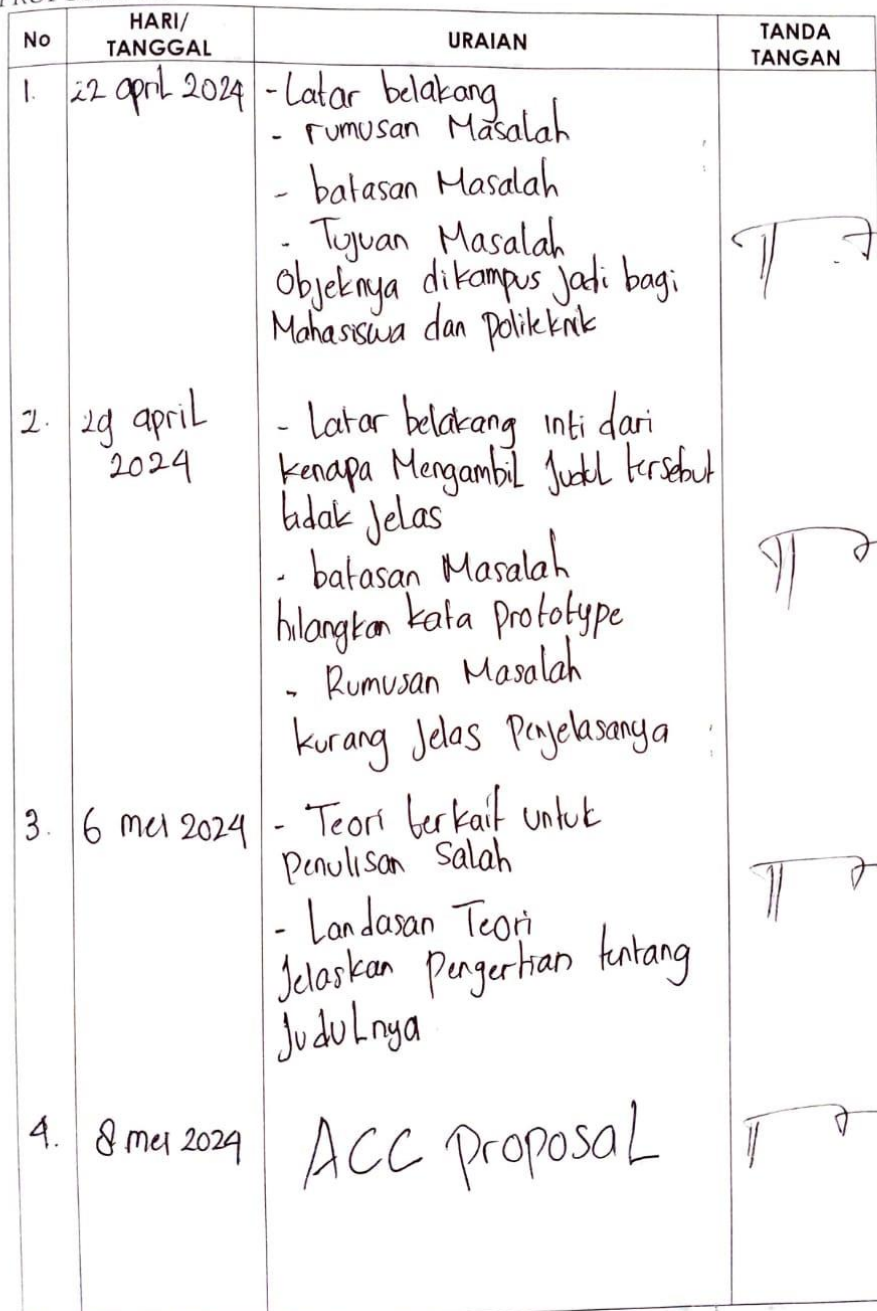 No HARI/ TANGGAL URAIAN TANDA TANGAN
1. 22 april 2024 - Latar belakang
- rumusan Masalah
- batasan Masalah
- Tujuan Masalah
Objeknya dikampus jadi bagi
Mahasiswa dan Polikknik
2. 29 april 2024 - Latar belakang inti dari
kenapa Mengambil Judul tersebut
tidak Jelas
- batasan Masalah
hilangkan kata Prototype
- Rumusan Masalah
kurang Jelas Penjelasanya
3. 6 mei 2024 - Teori berkait untuk
Penulisan Salah
- Landasan Teori
Jelaskan Pengertian tentang
Judulnya
4. 8 mei 2024 ACC Proposal